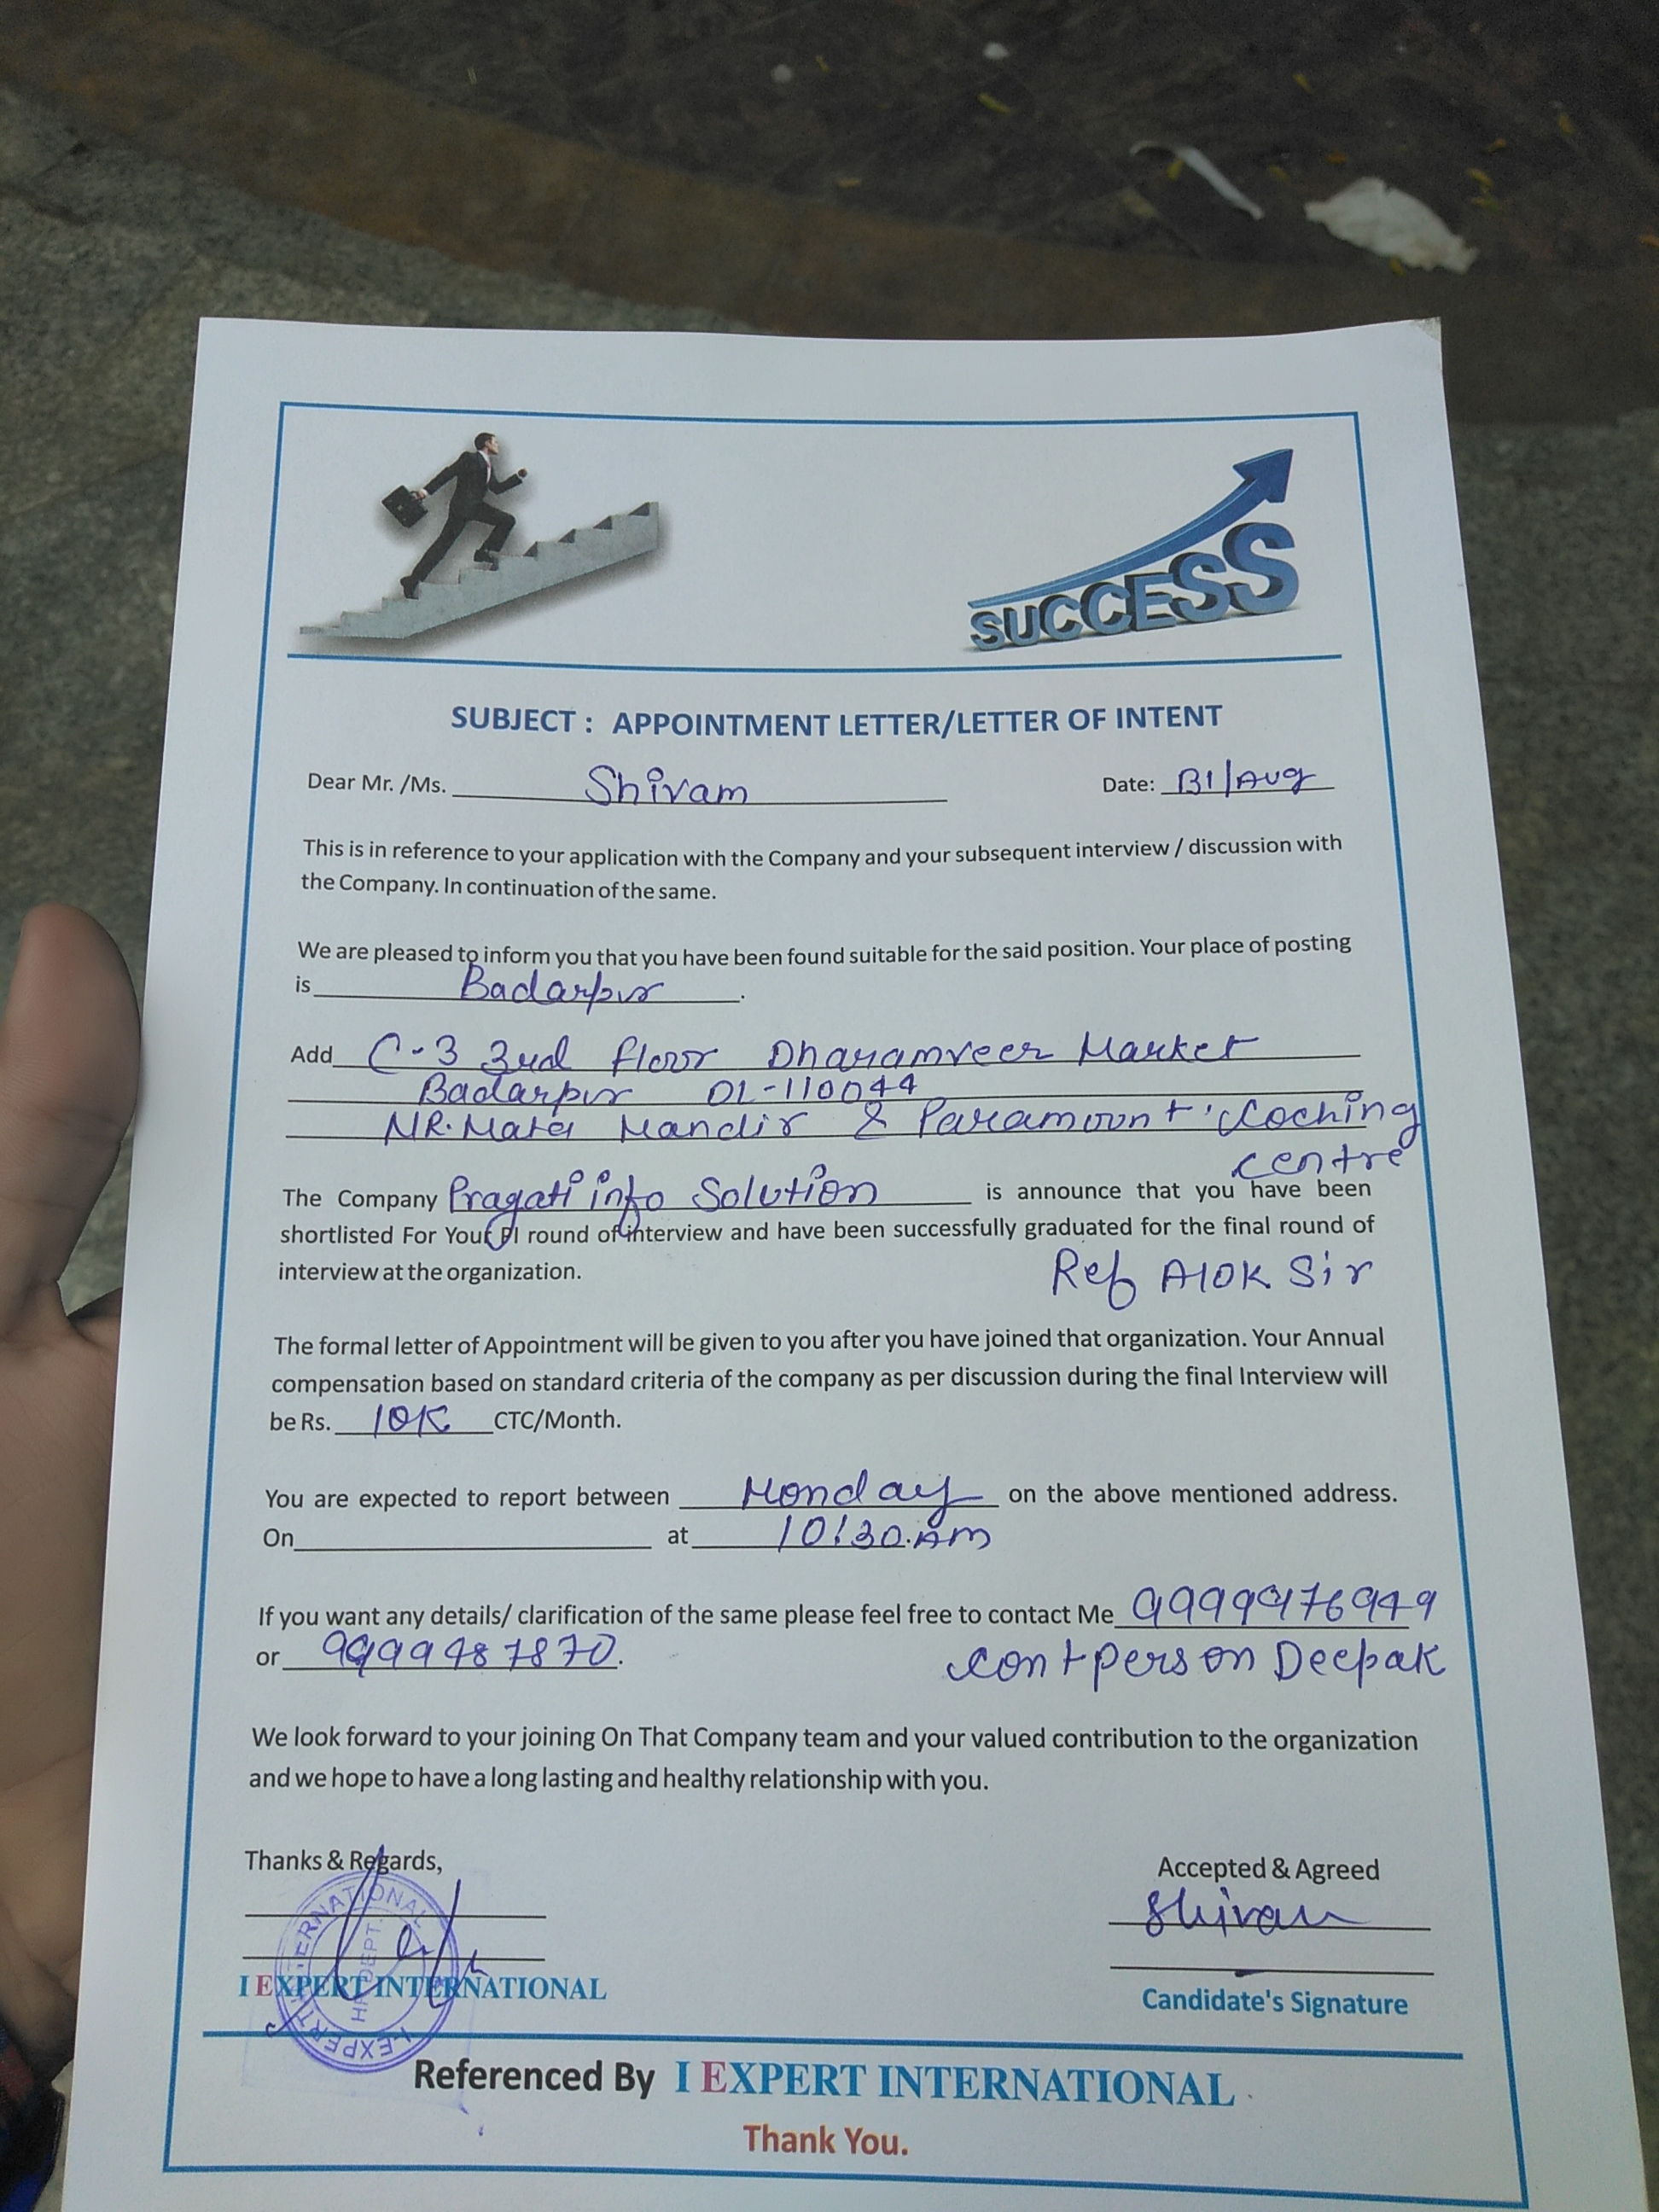 SUCCESS
SUBJECT : APPOINTMENT LETTER/LETTER OF INTENT
Dear Mr. /Ms. Shivam Date: 31/Aug
This is in reference to your application with the Company and your subsequent interview / discussion with
the Company. In continuation of the same.
We are pleased to inform you that you have been found suitable for the said position. Your place of posting
is Badarpur.
Add C-3 3rd floor Dharamveer Market
Badarpur DL-110044
NR. Mata Mandir & Paramount Coching
centre
The Company Pragati info Solution is announce that you have been
shortlisted For Your PI round of interview and have been successfully graduated for the final round of
interview at the organization.
Ref Alok Sir
The formal letter of Appointment will be given to you after you have joined that organization. Your Annual
compensation based on standard criteria of the company as per discussion during the final Interview will
be Rs. 10K CTC/Month.
You are expected to report between Monday on the above mentioned address.
On at 10:30.AM
If you want any details/ clarification of the same please feel free to contact Me
or 9999487870.
cont person Deepak
We look forward to your joining On That Company team and your valued contribution to the organization
and we hope to have a long lasting and healthy relationship with you.
Thanks & Regards, Accepted & Agreed
Shivam
I EXPERT INTERNATIONAL
I-EXPERT INTERNATIONAL
HR DEPT.
Candidate's Signature
Referenced By I EXPERT INTERNATIONAL
Thank You.